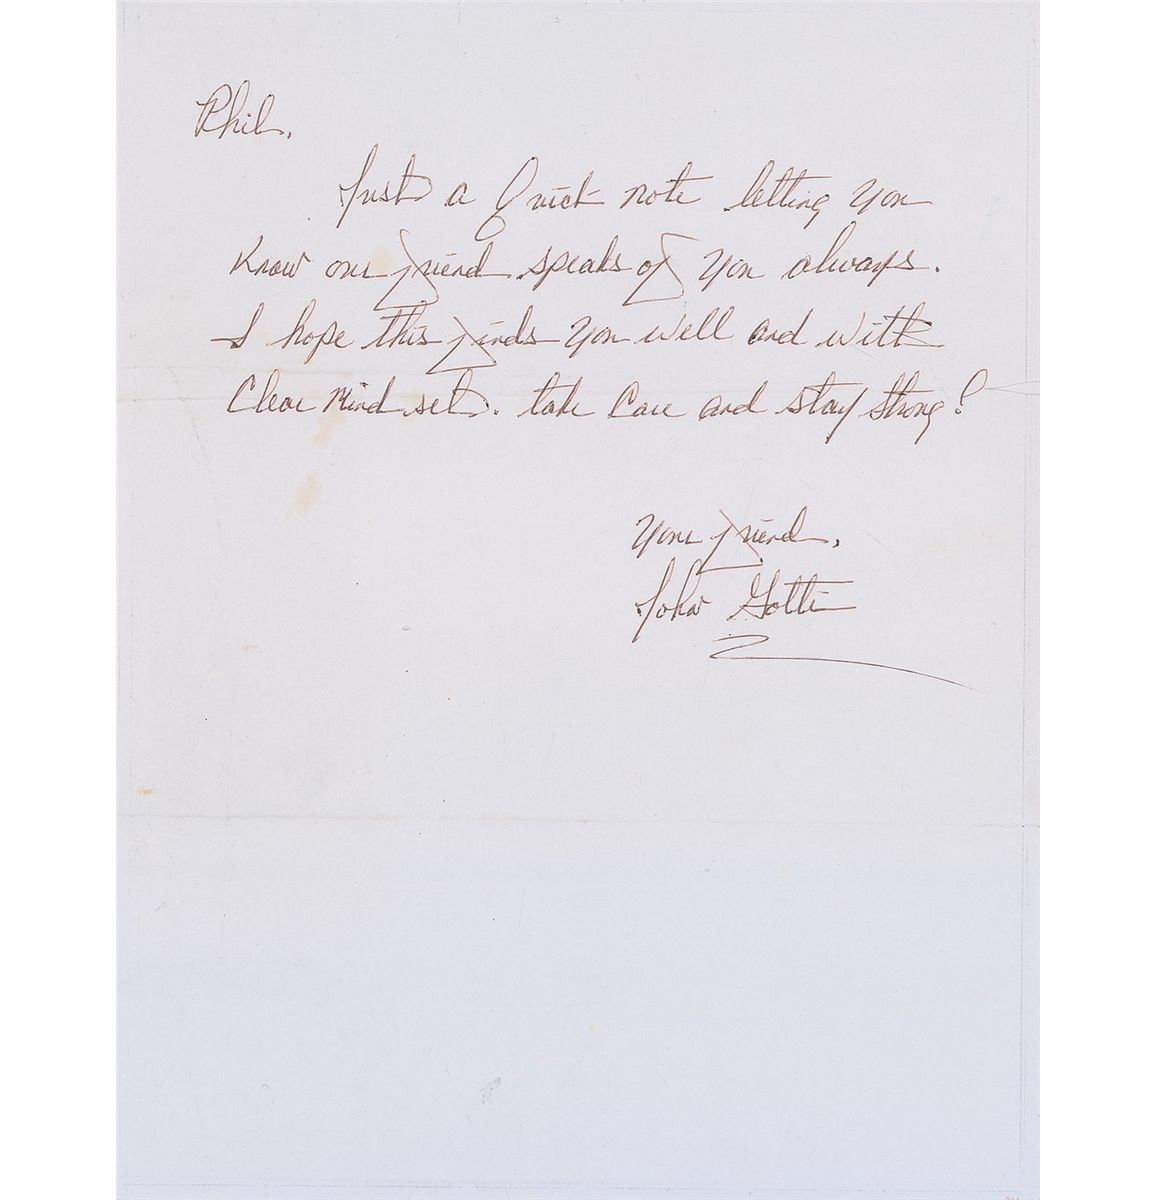 Phil,
Just a Quick note letting you
Know our friend speaks of you always.
I hope this finds you well and with
Clear Mind set. take Care and stay strong!
Your friend,
John Gotti